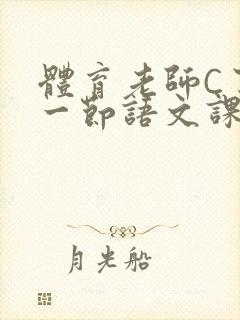 體育老師C
一節語文課
月光船